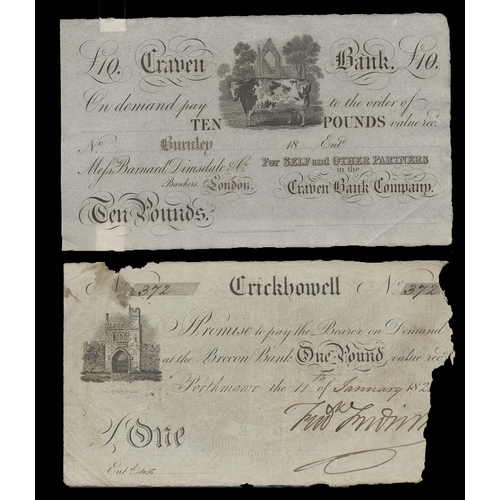 £10. Craven Bank. £10.
On demand pay to the order of
TEN POUNDS value rec.d
No Burnley 18 Ent.d
Mess.rs Barnard, Dimsdale & Co. For SELF and OTHER PARTNERS
Bankers London. in the
Craven Bank Company.
Ten Pounds.
No 372 Crickhowell No 372
I Promise to pay the Bearer on Demand
at the Brecon Bank One Pound value rec
Porthmawr the 11th of January 182
£ One
Ent.d